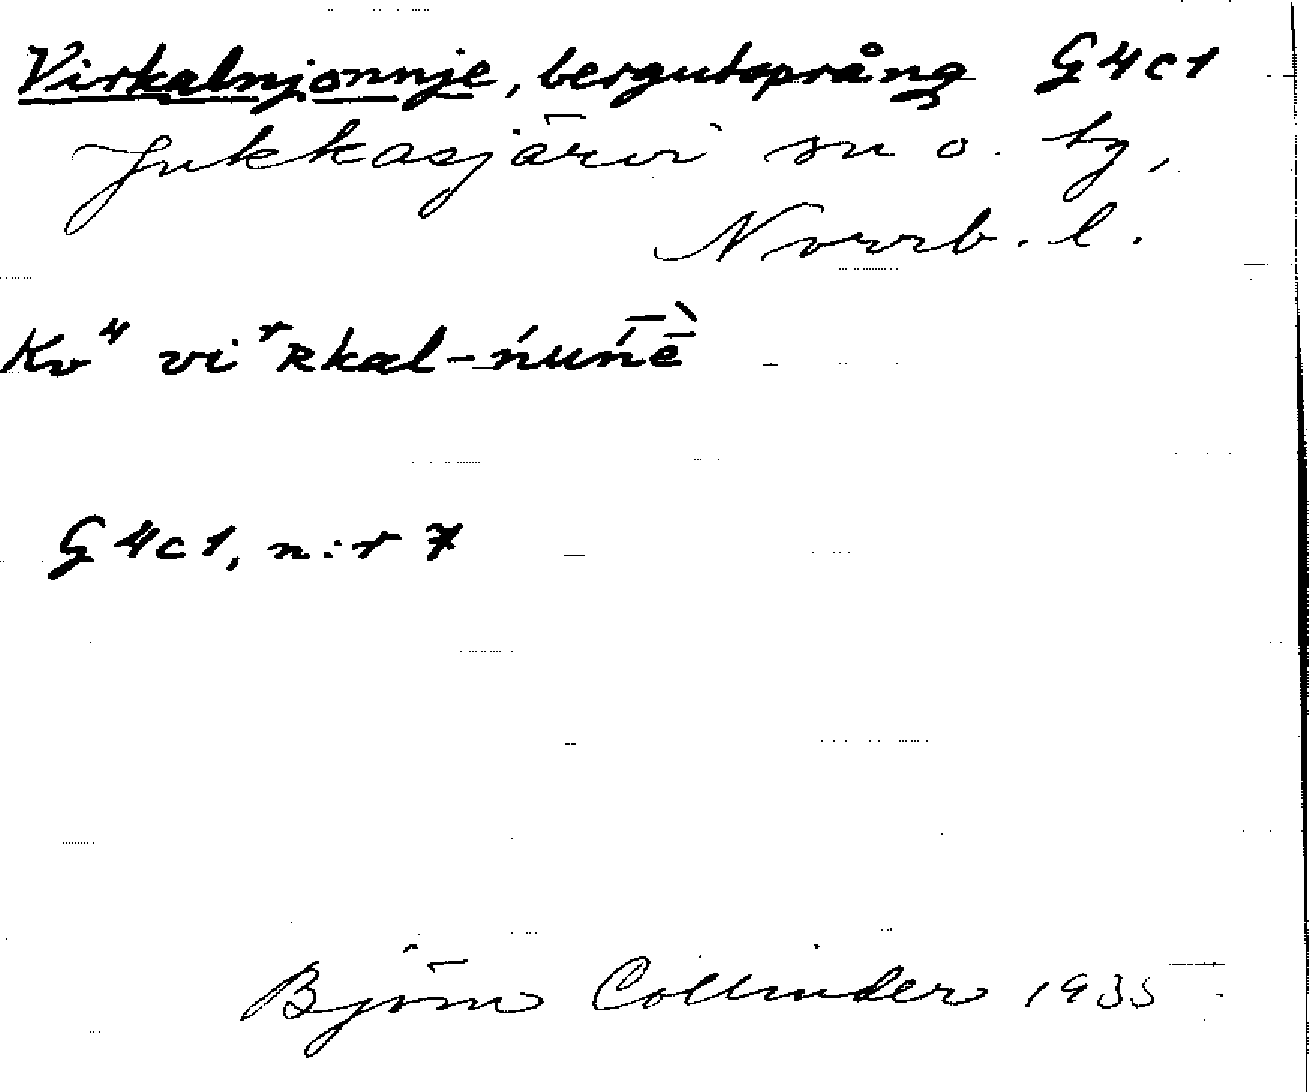 Virkalnjonnje, bergutsprång G4c1
Jukkasjärvi sn o. by,
Norrb. l.
Kv⁴ viʳʀkal-ńuńḕ
G4c1, n:r 7
Björn Collinder 1935